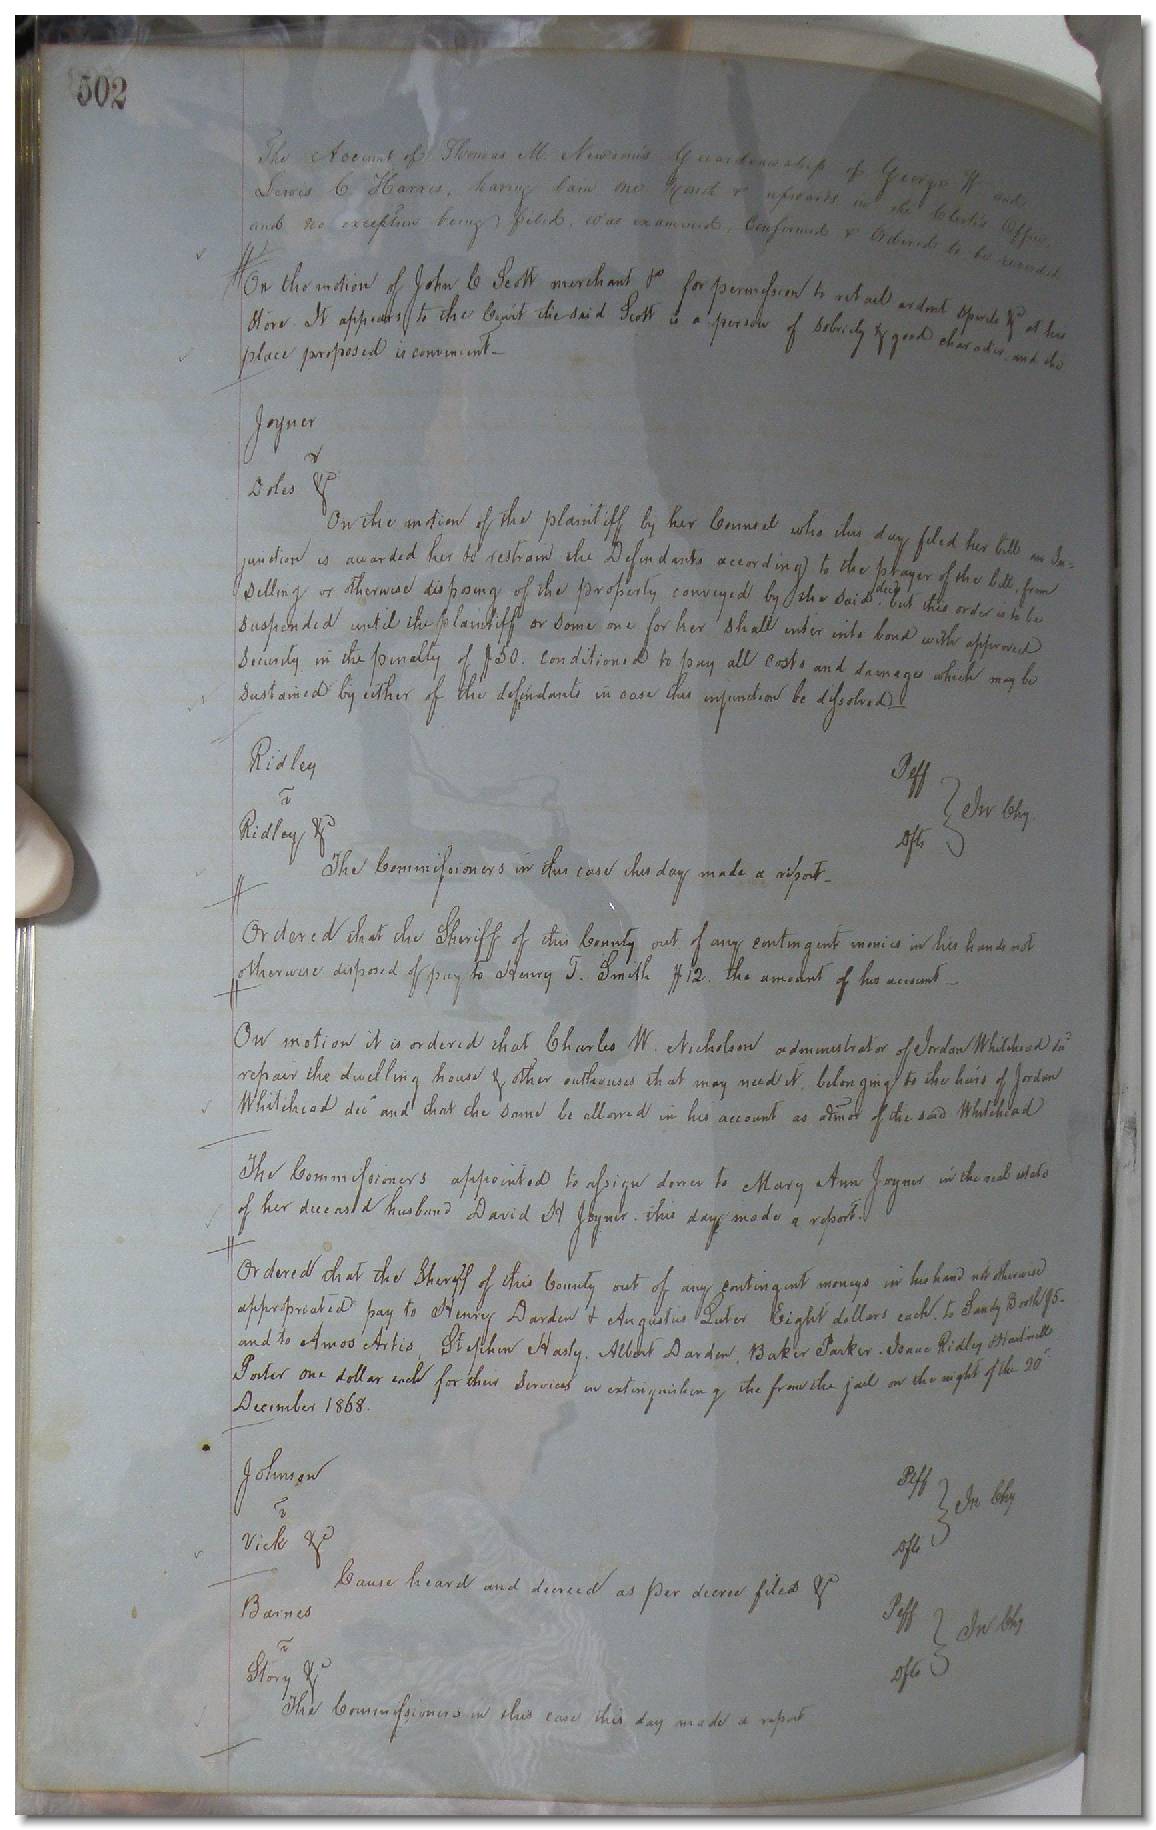 502
The Account of Thomas M. Newsom's Guardianship of George W and
Lewis C Harris, having lain one Court & upwards in the Clerk's Office,
and no exception being filed, was examined, Confirmed & Ordered to be recorded
On the motion of John C Scott merchant &c for permission to retail ardent spirits &c at his
store. It appears to the Court the said Scott is a person of sobriety & good character and the
place proposed is convenient_
Joyner
v
Doles &c
On the motion of the plaintiff by her Counsel who this day filed her bill an In=
junction is awarded her to restrain the Defendants according to the prayer of the bill, from
selling or otherwise disposing of the property conveyed by the said deed. but this order is to be
suspended until the plaintiff or some one for her shall enter into bond with approved
security in the penalty of $50. conditioned to pay all costs and damages which may be
sustained by either of the defendants in case this injunction be dissolved_
Ridley Plff
v } In Chy.
Ridley &c Dfts
The Commissioners in this case this day made a report_
Ordered that the Sheriff of this County out of any contingent monies in his hands not
otherwise disposed of pay to Henry T. Smith $12. the amount of his account_
On motion it is ordered that Charles W. Nicholson administrator of Jordon Whitehead do
repair the dwelling house & other outhouses that may need it, belonging to the heirs of Jordon
Whitehead decd and that the same be allowed in his account as admor of the said Whitehead
The Commissioners appointed to assign dower to Mary Ann Joyner in the real estate
of her deceased husband David H Joyner. this day made a report.
Ordered that the Sheriff of this County out of any contingent moneys in his hand not otherwise
appropriated pay to Henry Darden & Augustus Luter Eight dollars each, to Sandy Booth $5-
and to Amos Artis, Stephen Hasty, Albert Darden, Baker Parker. Isaac Ridley
Porter one dollar each for their services in extinguishing the from the jail on the night of the 20th
December 1868.
Johnson Plff
v } In Chy
Vick &c Dfts
Cause heard and decreed as per decree filed &c
Barnes Plff
v } In Chy
Story &c Dfts
The Commissioners in this case this day made a report